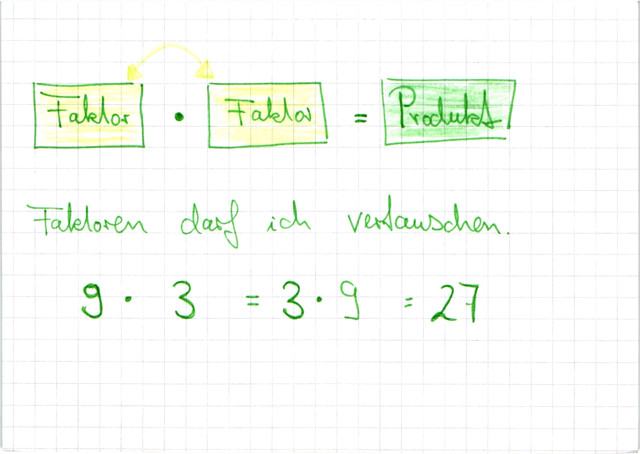 Faktor · Faktor = Produkt
Faktoren darf ich vertauschen.
9 · 3 = 3 · 9 = 27